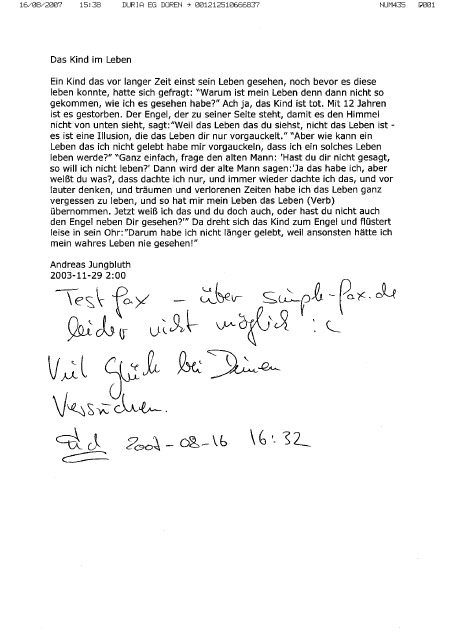 16/08/2007 15:38 DURIA EG DÜREN → 001212510666837 NUM435 D001
Das Kind im Leben
Ein Kind das vor langer Zeit einst sein Leben gesehen, noch bevor es diese
leben konnte, hatte sich gefragt: "Warum ist mein Leben denn dann nicht so
gekommen, wie ich es gesehen habe?" Ach ja, das Kind ist tot. Mit 12 Jahren
ist es gestorben. Der Engel, der zu seiner Seite steht, damit es den Himmel
nicht von unten sieht, sagt:"Weil das Leben das du siehst, nicht das Leben ist -
es ist eine Illusion, die das Leben dir nur vorgauckelt." "Aber wie kann ein
Leben das ich nicht gelebt habe mir vorgauckeln, dass ich ein solches Leben
leben werde?" "Ganz einfach, frage den alten Mann: 'Hast du dir nicht gesagt,
so will ich nicht leben?' Dann wird der alte Mann sagen:'Ja das habe ich, aber
weißt du was?, dass dachte ich nur, und immer wieder dachte ich das, und vor
lauter denken, und träumen und verlorenen Zeiten habe ich das Leben ganz
vergessen zu leben, und so hat mir mein Leben das Leben (Verb)
übernommen. Jetzt weiß ich das und du doch auch, oder hast du nicht auch
den Engel neben Dir gesehen?'" Da dreht sich das Kind zum Engel und flüstert
leise in sein Ohr:"Darum habe ich nicht länger gelebt, weil ansonsten hätte ich
mein wahres Leben nie gesehen!"
Andreas Jungbluth
2003-11-29 2:00
Testfax – über simple-fax.de
leider nicht möglich :c
Viel Glück bei Deinen
Versuchen.
2007-08-16 16:32